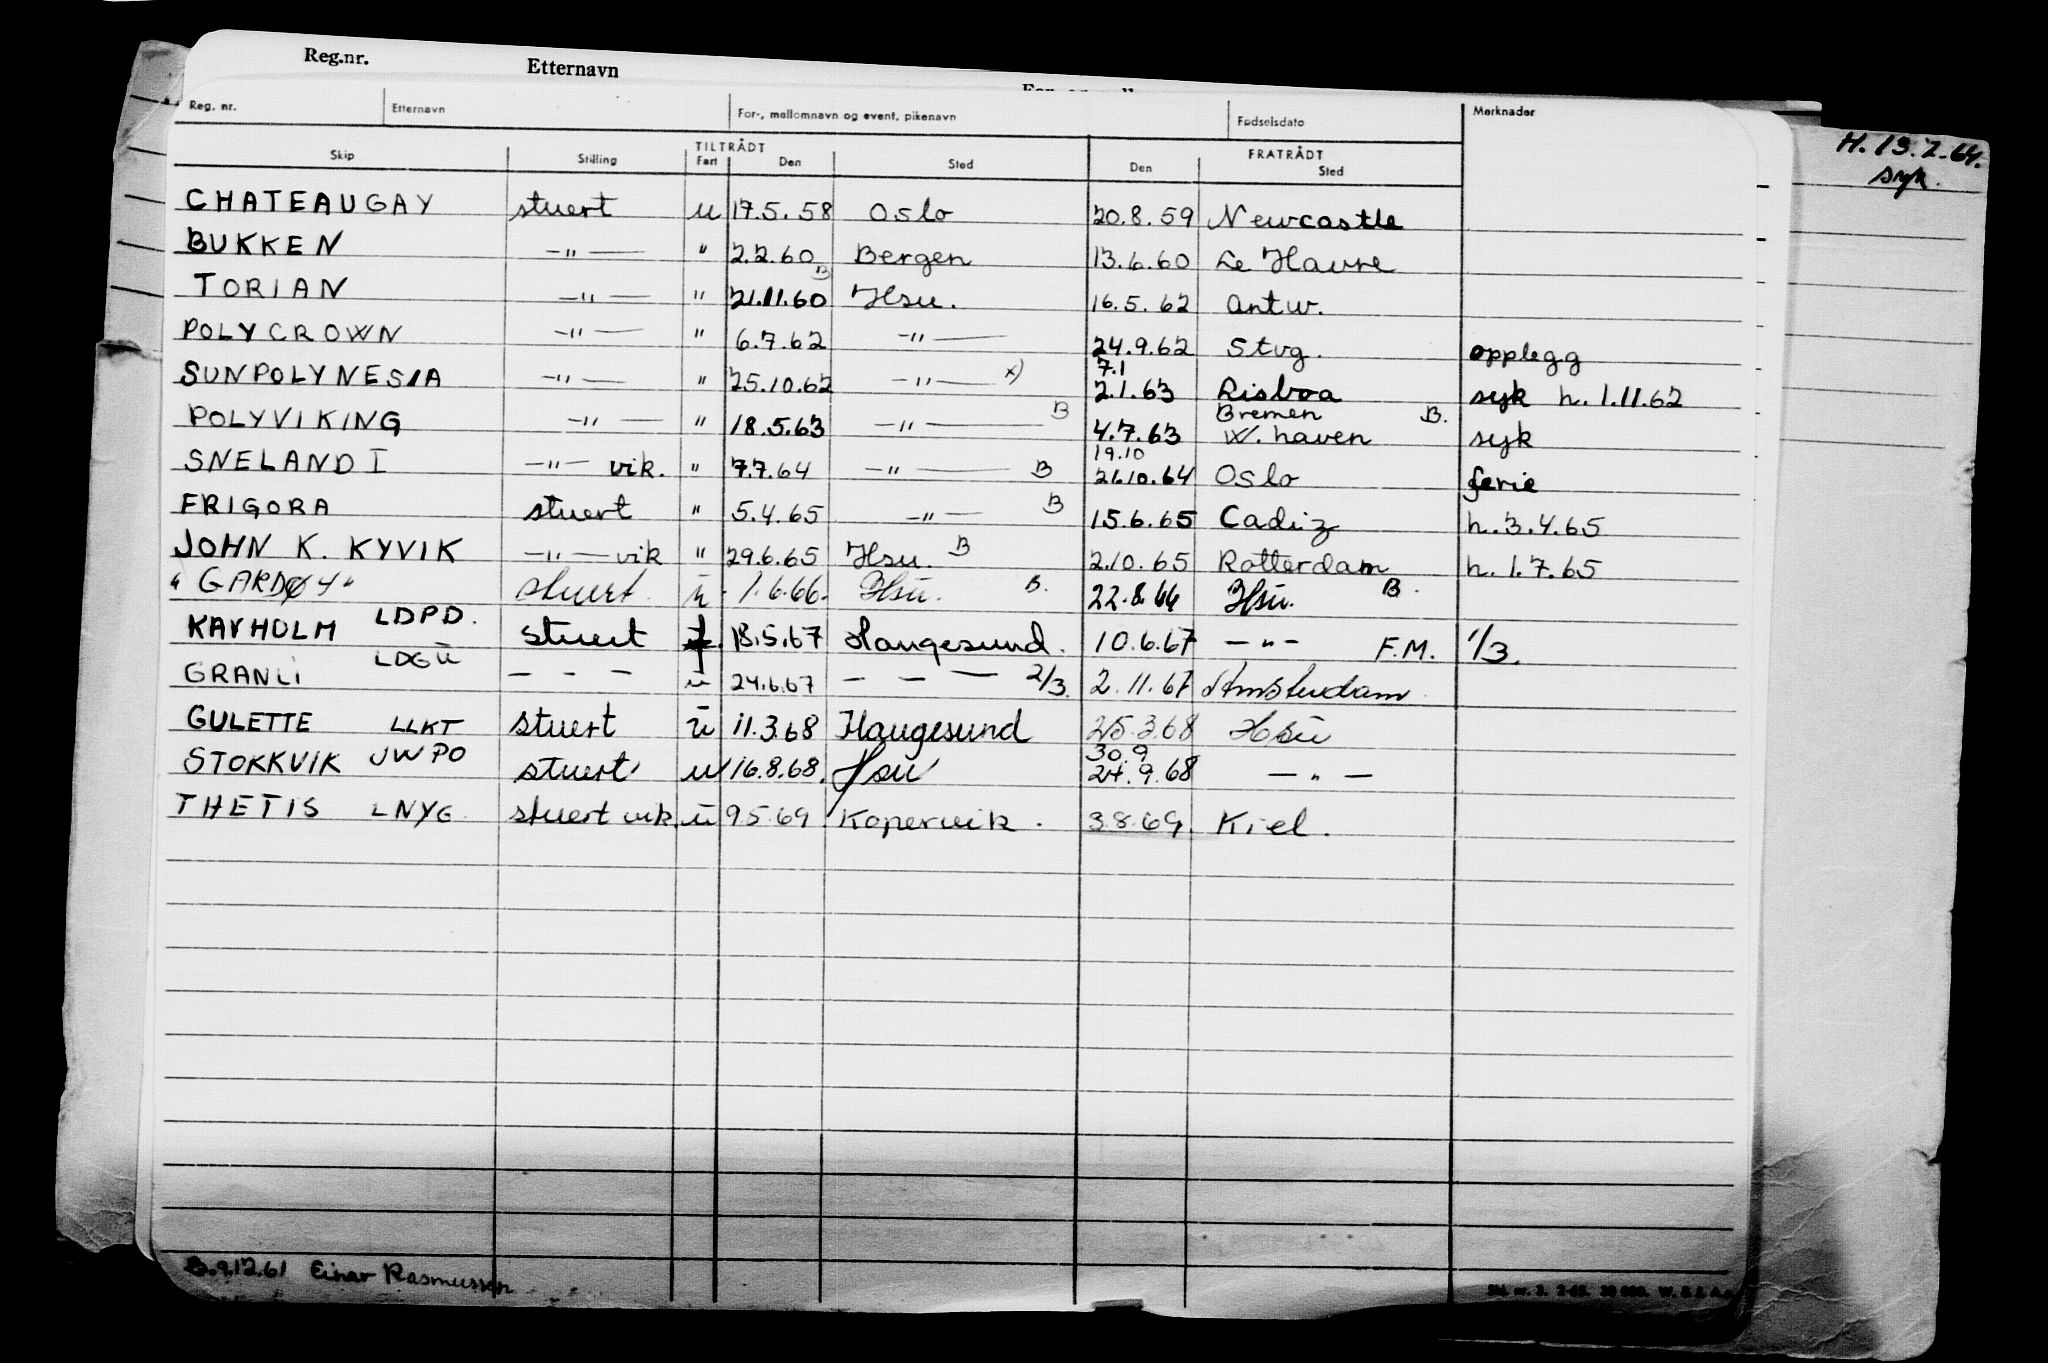 Reg.nr. Etternavn
Reg. nr. Etternavn For-, mellomnavn og event. pikenavn Fødselsdato Merknader
H. 13.2.64.
syk.
TILTRÅDT FRATRÅDT
Skip Stilling Fart Den Sted Den Sted
CHATEAUGAY stuert u 17.5.58 Oslo 20.8.59 Newcastle
BUKKEN —"— " 2.2.60 Bergen 13.6.60 Le Havre
TORIAN —"— " 21.11.60 B Hsu. 16.5.62 Antw.
POLYCROWN —"— " 6.7.62 —"— 24.9.62 Stvg. opplegg
SUNPOLYNESIA —"— " 25.10.62 —"— x) 7.1 2.1.63 Lisboa syk h. 1.11.62
POLYVIKING —"— " 18.5.63 —"— B 4.7.63 Bremen W. haven B. syk
SNELAND I —"— vik. " 7.7.64 —"— B 19.10 26.10.64 Oslo ferie
FRIGORA stuert " 5.4.65 —"— B 15.6.65 Cadiz h. 3.4.65
JOHN K. KYVIK —"— vik " 29.6.65 Hsu. B 2.10.65 Rotterdam h. 1.7.65
"GARDØY" stuert u 1.6.66. Hsu. B. 22.8.66 Hsu. B.
KAVHOLM LDPD. stuert f 18.5.67 Haugesund. 10.6.67 —"— F.M. 1/3.
GRANLI LDGU — — — u 24.6.67 — — — 2/3. 2.11.67 Amsterdam
GULETTE LLKT stuert u 11.3.68 Haugesund 25.3.68 Hsu
STOKKVIK JWPO stuert u 16.8.68. Hsu 30.9 24.9.68 — " —
THETIS LNYG stuert vik. u 9.5.69 Kopervik. 3.8.69. Kiel.
B. 9.12.61 Einar Rasmussen